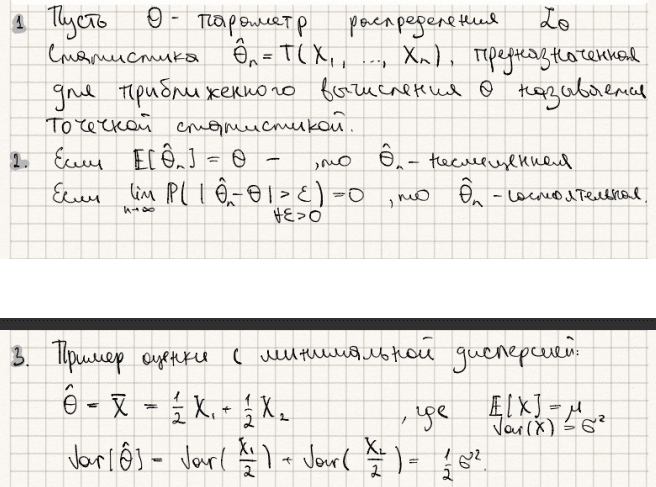 1 Пусть θ - параметр распределения L_θ
Статистика θ̂_n = T(X_1, ..., X_n), предназначенная
для приближенного вычисления θ называется
точечной статистикой.
2. Если E[θ̂_n] = θ - , то θ̂_n - несмещенная
Если lim_{n→∞} P(|θ̂_n - θ| > ε) = 0, то θ̂_n - состоятельная.
∀ε>0
3. Пример оценки с минимальной дисперсией:
θ̂ = X̄ = 1/2 X_1 + 1/2 X_2 , где E[X] = μ
Var(X) = σ²
Var[θ̂] = Var(X_1/2) + Var(X_2/2) = 1/2 σ².